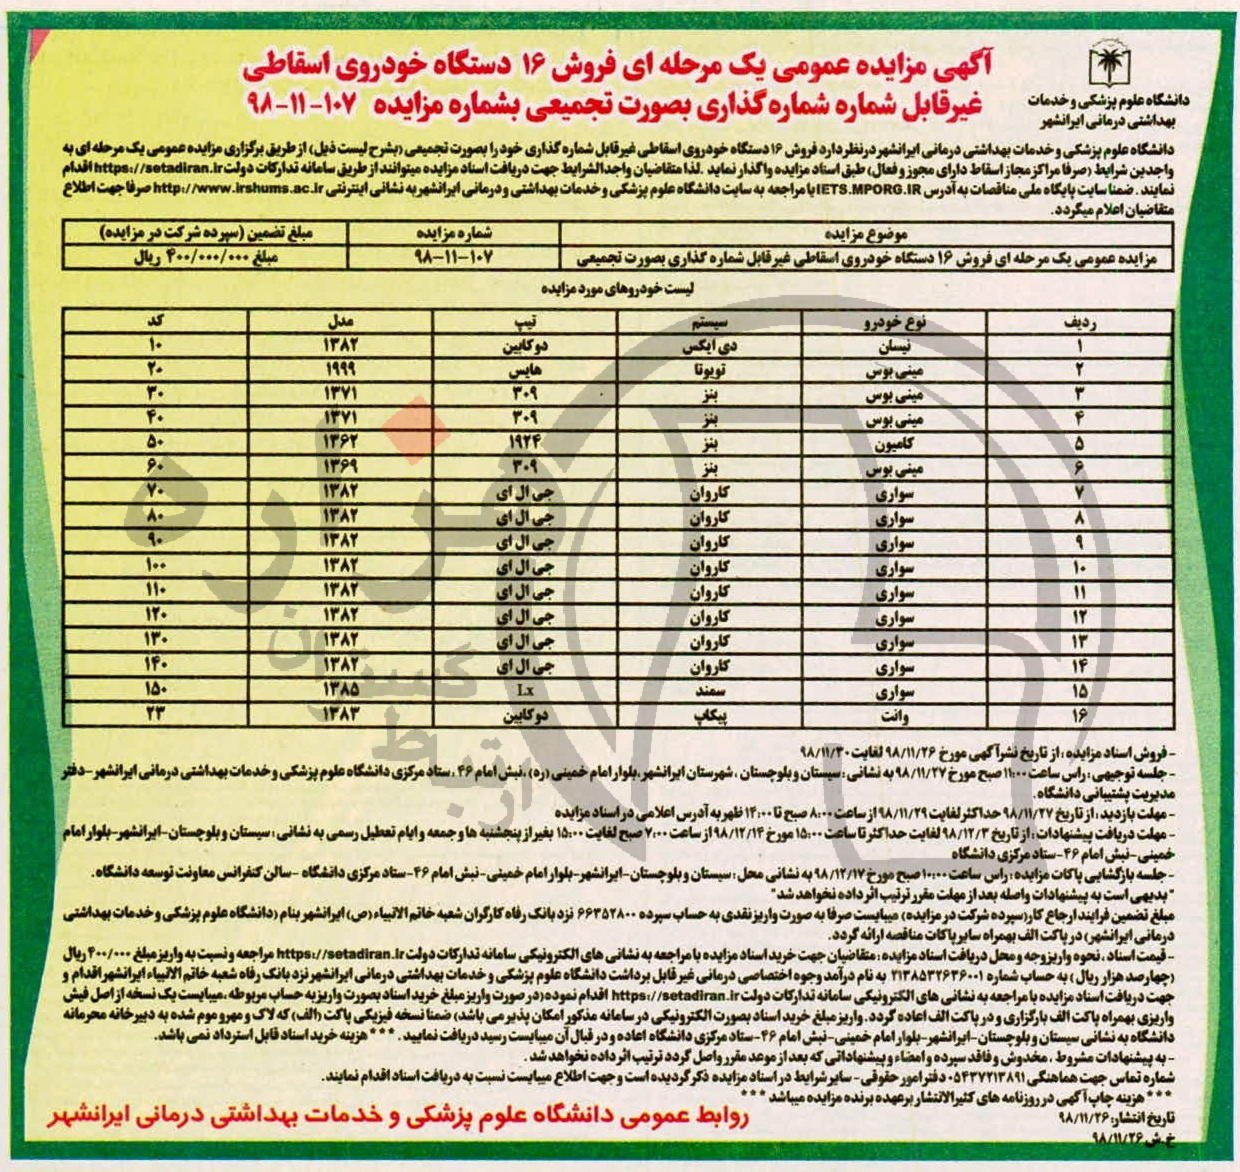 دانشگاه علوم پزشکی و خدمات
بهداشتی درمانی ایرانشهر
آگهی مزایده عمومی یک مرحله ای فروش ۱۶ دستگاه خودروی اسقاطی
غیرقابل شماره شماره گذاری بصورت تجمیعی بشماره مزایده ۱۰۷-۱۱-۹۸
دانشگاه علوم پزشکی و خدمات بهداشتی درمانی ایرانشهر در نظر دارد فروش ۱۶ دستگاه خودروی اسقاطی غیر قابل شماره گذاری خود را بصورت تجمیعی (بشرح لیست ذیل) از طریق برگزاری مزایده عمومی یک مرحله ای به
واجدین شرایط (صرفا مراکز مجاز اسقاط دارای مجوز و فعال) طبق اسناد مزایده واگذار نماید. لذا متقاضیان واجد الشرایط جهت دریافت اسناد مزایده میتوانند از طریق سامانه تدارکات دولت https://setadiran.ir اقدام
نمایند. ضمنا سایت پایگاه ملی مناقصات به آدرس IETS.MPORG.IR با مراجعه به سایت دانشگاه علوم پزشکی و خدمات بهداشتی و درمانی ایرانشهر به نشانی اینترنتی http://www.irshums.ac.ir صرفا جهت اطلاع
متقاضیان اعلام میگردد.
موضوع مزایده شماره مزایده مبلغ تضمین (سپرده شرکت در مزایده)
مزایده عمومی یک مرحله ای فروش ۱۶ دستگاه خودروی اسقاطی غیر قابل شماره گذاری بصورت تجمیعی ۱۰۷-۱۱-۹۸ مبلغ ۴۰۰/۰۰۰/۰۰۰ ریال
لیست خودروهای مورد مزایده
ردیف نوع خودرو سیستم تیپ مدل کد
۱ نیسان دی ایکس دوکابین ۱۳۸۲ ۱۰
۲ مینی بوس تویوتا هایس ۱۹۹۹ ۲۰
۳ مینی بوس بنز ۳۰۹ ۱۳۷۱ ۳۰
۴ مینی بوس بنز ۳۰۹ ۱۳۷۱ ۴۰
۵ کامیون بنز ۱۹۲۴ ۱۳۶۲ ۵۰
۶ مینی بوس بنز ۳۰۹ ۱۳۶۹ ۶۰
۷ سواری کاروان جی ال ای ۱۳۸۲ ۷۰
۸ سواری کاروان جی ال ای ۱۳۸۲ ۸۰
۹ سواری کاروان جی ال ای ۱۳۸۲ ۹۰
۱۰ سواری کاروان جی ال ای ۱۳۸۲ ۱۰۰
۱۱ سواری کاروان جی ال ای ۱۳۸۲ ۱۱۰
۱۲ سواری کاروان جی ال ای ۱۳۸۲ ۱۲۰
۱۳ سواری کاروان جی ال ای ۱۳۸۲ ۱۳۰
۱۴ سواری کاروان جی ال ای ۱۳۸۲ ۱۴۰
۱۵ سواری سمند Lx ۱۳۸۵ ۱۵۰
۱۶ وانت پیکاپ دوکابین ۱۳۸۳ ۲۳
- فروش اسناد مزایده : از تاریخ نشر آگهی مورخ ۹۸/۱۱/۲۶ لغایت ۹۸/۱۱/۳۰
- جلسه توجیهی : راس ساعت ۱۱:۰۰ صبح مورخ ۹۸/۱۱/۲۷ به نشانی : سیستان و بلوچستان ، شهرستان ایرانشهر، بلوار امام خمینی (ره) ، نبش امام ۴۶ ، ستاد مرکزی دانشگاه علوم پزشکی و خدمات بهداشتی درمانی ایرانشهر - دفتر
مدیریت پشتیبانی دانشگاه.
- مهلت بازدید : از تاریخ ۹۸/۱۱/۲۷ حداکثر لغایت ۹۸/۱۱/۲۹ از ساعت ۸:۰۰ صبح تا ۱۴:۰۰ ظهر به آدرس اعلامی در اسناد مزایده
- مهلت دریافت پیشنهادات : از تاریخ ۹۸/۱۲/۳ لغایت حداکثر تا ساعت ۱۵:۰۰ مورخ ۹۸/۱۲/۱۴ از ساعت ۷:۰۰ صبح لغایت ۱۵:۰۰ بغیر از پنجشنبه ها و جمعه و ایام تعطیل رسمی به نشانی : سیستان و بلوچستان-ایرانشهر-بلوار امام
خمینی-نبش امام ۴۶-ستاد مرکزی دانشگاه
- جلسه بازگشایی پاکات مزایده : راس ساعت ۱۰:۰۰ صبح مورخ ۹۸/۱۲/۱۷ به نشانی محل : سیستان و بلوچستان-ایرانشهر-بلوار امام خمینی-نبش امام ۴۶-ستاد مرکزی دانشگاه - سالن کنفرانس معاونت توسعه دانشگاه.
"بدیهی است به پیشنهادات واصله بعد از مهلت مقرر ترتیب اثر داده نخواهد شد"
مبلغ تضمین فرایند ارجاع کار (سپرده شرکت در مزایده) میبایست صرفا به صورت واریز نقدی به حساب سپرده ۶۶۳۵۲۸۰۰ نزد بانک رفاه کارگران شعبه خاتم الانبیاء (ص) ایرانشهر بنام (دانشگاه علوم پزشکی و خدمات بهداشتی
درمانی ایرانشهر) در پاکت الف بهمراه سایر پاکات مناقصه ارائه گردد.
- قیمت اسناد ، نحوه واریز وجه و محل دریافت اسناد مزایده : متقاضیان جهت خرید اسناد مزایده با مراجعه به نشانی های الکترونیکی سامانه تدارکات دولت https://setadiran.ir مراجعه و نسبت به واریز مبلغ ۴۰۰/۰۰۰ ریال
(چهارصد هزار ریال) به حساب شماره ۲۱۳۸۵۳۲۶۳۶۰۰۱ به نام درآمد وجوه اختصاصی درمانی غیر قابل برداشت دانشگاه علوم پزشکی و خدمات بهداشتی درمانی ایرانشهر نزد بانک رفاه شعبه خاتم الانبیاء ایرانشهر اقدام و
جهت دریافت اسناد مزایده با مراجعه به نشانی های الکترونیکی سامانه تدارکات دولت https://setadiran.ir اقدام نموده (در صورت واریز مبلغ خرید اسناد بصورت واریز به حساب مربوطه ، میبایست یک نسخه از اصل فیش
واریزی بهمراه پاکت الف بارگزاری و در پاکت الف اعاده گردد. واریز مبلغ خرید اسناد بصورت الکترونیکی در سامانه مذکور امکان پذیر می باشد) ضمنا نسخه فیزیکی پاکت (الف) که لاک و مهر و موم شده به دبیرخانه محرمانه
دانشگاه به نشانی سیستان و بلوچستان-ایرانشهر-بلوار امام خمینی-نبش امام ۴۶-ستاد مرکزی دانشگاه اعاده و در قبال آن میبایست رسید دریافت نمایید. *** هزینه خرید اسناد قابل استرداد نمی باشد.
- به پیشنهادات مشروط ، مخدوش و فاقد سپرده و امضاء و پیشنهاداتی که بعد از موعد مقرر واصل گردد ترتیب اثر داده نخواهد شد.
شماره تماس جهت هماهنگی ۰۵۴۳۷۲۱۳۸۹۱ دفتر امور حقوقی- سایر شرایط در اسناد مزایده ذکر گردیده است و جهت اطلاع میبایست نسبت به دریافت اسناد اقدام نمایند.
*** هزینه چاپ آگهی در روزنامه های کثیرالانتشار بر عهده برنده مزایده میباشد ***
تاریخ انتشار: ۹۸/۱۱/۲۶
خ ش ۹۸/۱۱/۲۶
روابط عمومی دانشگاه علوم پزشکی و خدمات بهداشتی درمانی ایرانشهر